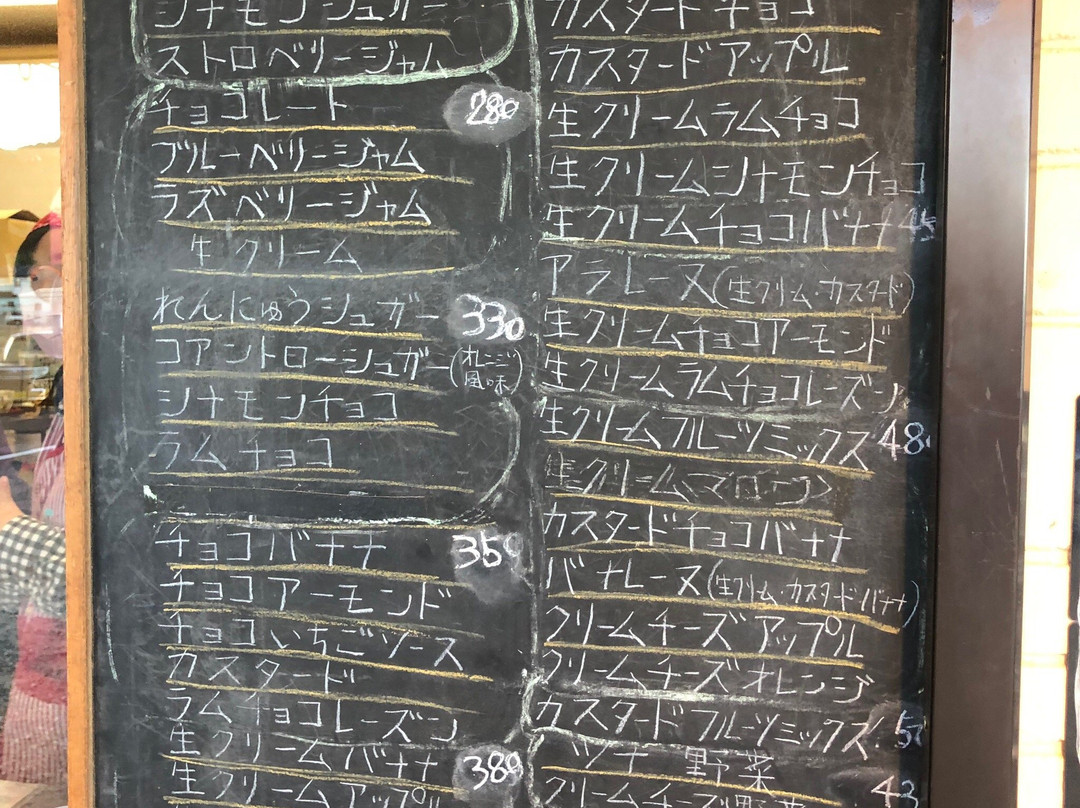 シナモンシュガー
ストロベリージャム
チョコレート 280
ブルーベリージャム
ラズベリージャム
生クリーム
れんにゅうシュガー 330
コアントローシュガー(オレンジ風味)
シナモンチョコ
ラムチョコ
チョコバナナ 350
チョコアーモンド
チョコいちごソース
カスタード
ラムチョコレーズン
生クリームバナナ 380
生クリームアップル
カスタードチョコ
カスタードアップル
生クリームラムチョコ
生クリームシナモンチョコ
生クリームチョコバナナ
アラレーヌ(生クリーム・カスタード)
生クリームチョコアーモンド
生クリームラムチョコレーズン
生クリームフルーツミックス 48
生クリーム〈マロン〉
カスタードチョコバナナ
バナレーヌ(生クリーム・カスタード・バナナ)
クリームチーズアップル
クリームチーズオレンジ
カスタードフルーツミックス
ツナ 野菜
クリームチーズ野菜 43